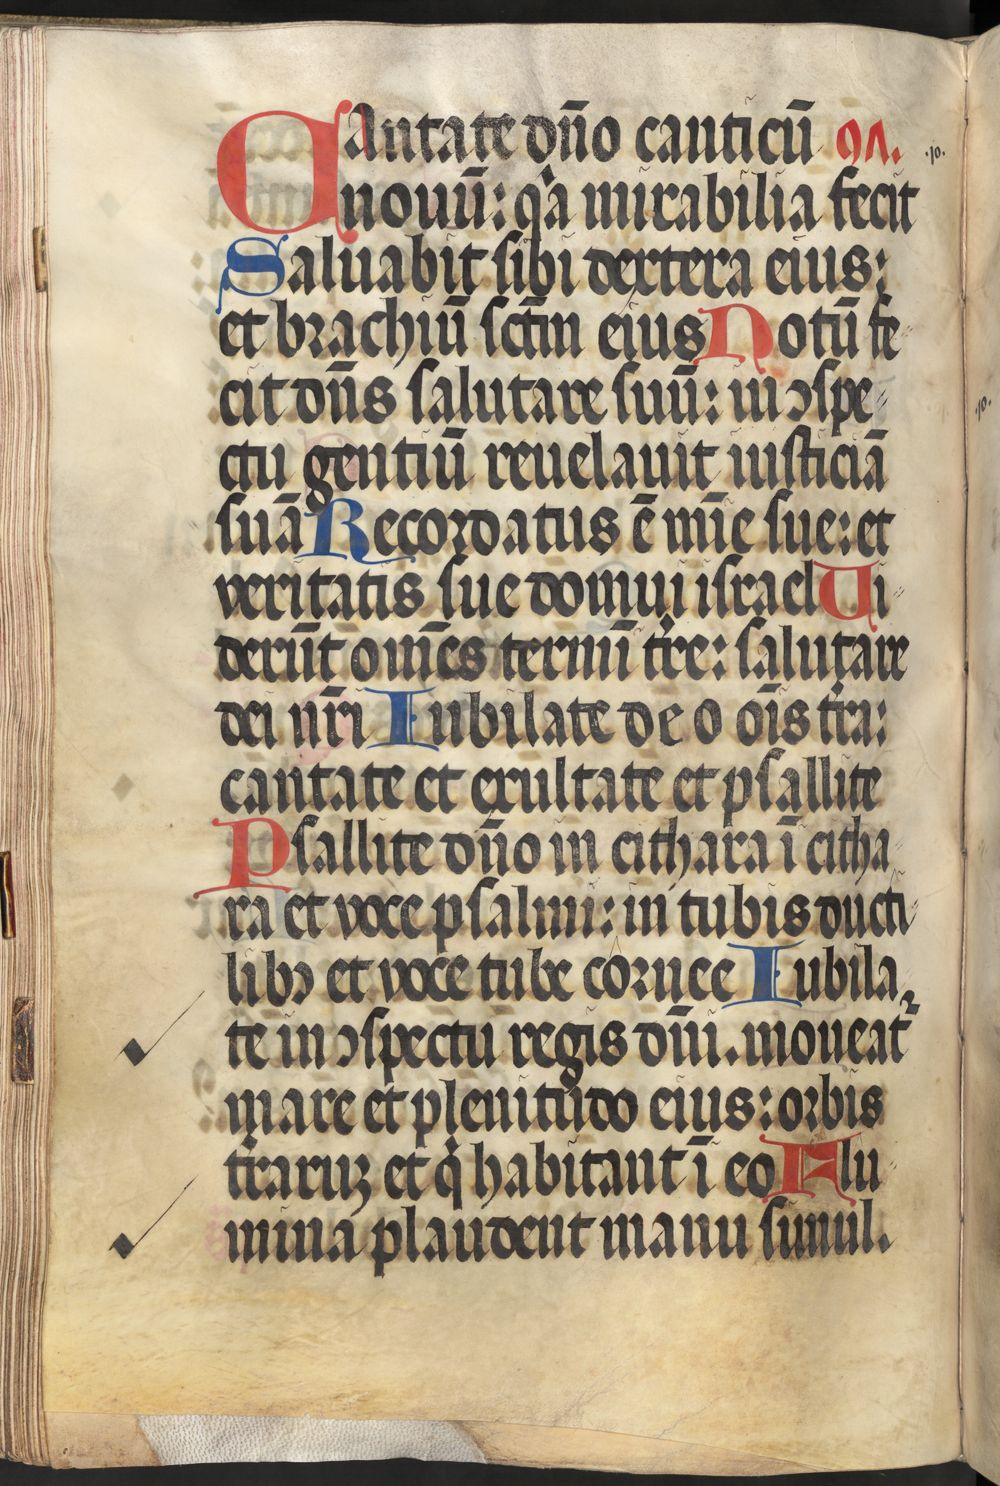 CAntate dño canticū ·10·
nouū: qa mirabilia fecit
Saluabit sibi dextera eius:
et brachiū sctm̄ eius Notū fe
cit dn̄s salutare suū: in ↄspe
ctu gentiū reuelauit iusticiā
suā Recordatus ē mīe sue: et
veritatis sue domui israel Vi
derūt om̄es termī tr̄e: salutare
dei nr̄i Iubilate deo oīs tr̄a:
cantate et exultate et psallite
Psallite dño in cithara ī citha
ra et voce psalmi: in tubis ducti
libꝫ et voce tube cornee Iubila
te in ↄspectu regis dn̄i. moueat᷑
mare et plenitudo eius: orbis
tr̄aruꝫ et q̇ habitant ī eo Flu
mina plaudent manu simul.
·10·